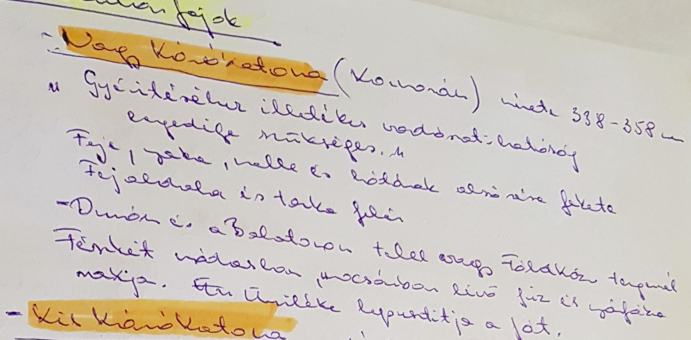 fajok
- Nagy Kárókatona (Kormorán) mérete 338-358 mm
" Gyérítéséhez illetékes vadászati hatóság
engedélye szükséges. "
Feje, nyaka, melle és hátának alsó része fekete
Fejoldala és torka fehér
- Dunán és a Balatonon telel vagy Földközi tengernél
Fészkét nádasban, mocsárban lévő fűz és nyárfára
rakja. Ürüléke kipusztítja a fát.
- Kis Kárókatona